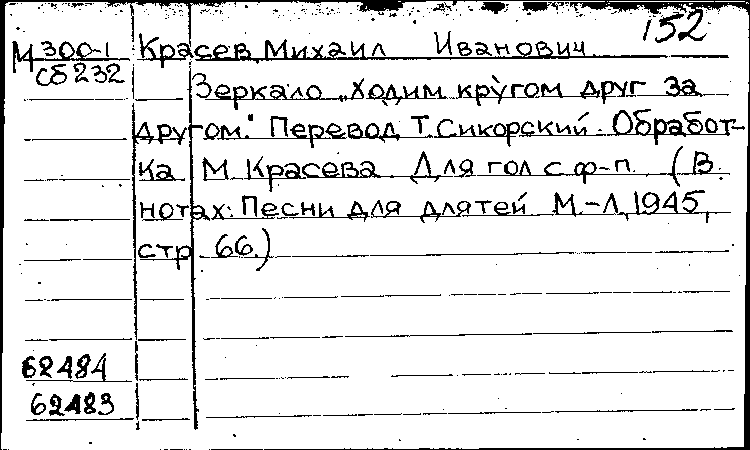 152
М 300-1 Красев, Михаил Иванович.
Сб 232
Зеркало „Ходим кругом друг за
другом." Перевод Т. Сикорский. Обработ-
ка М. Красева. Для гол с ф-п. (В
нотах: Песни для длятей М.-Л, 1945,
стр 66.)
62484
62483